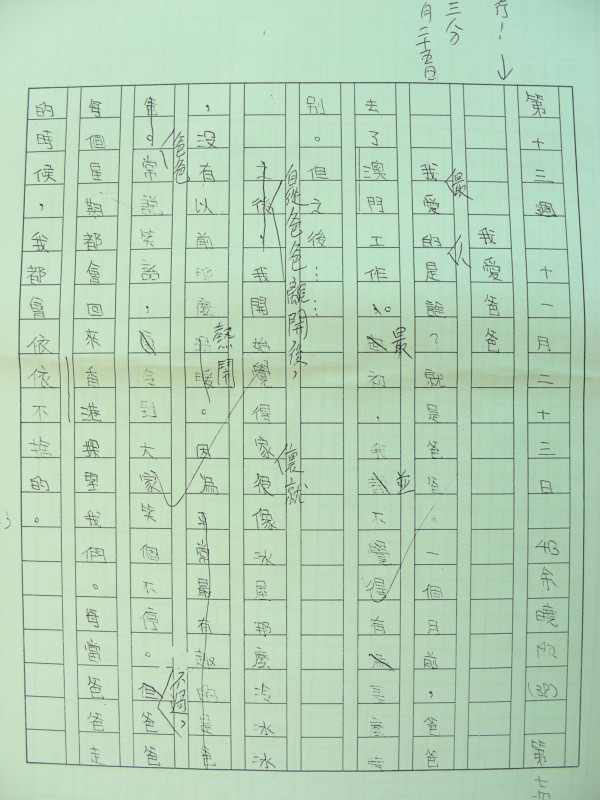 三分
月二十五日
第十三週 十一月二十三日 4B 余曉
我愛爸爸
我最愛的人是誰？就是爸爸。一個月前，爸爸
去了澳門工作。最初，我並不覺得有
別。但之後……
自從爸爸離開後，
之後，我開始覺得家裏就很像冰屋那麼冷冰冰
，沒有以前那麼熱鬧。因為平常最有趣的是爸
爸爸常說笑話，令到大家笑個不停。不過，爸爸
每個星期都會回來香港探望我們。每當爸爸走
的時候，我都會依依不捨的。